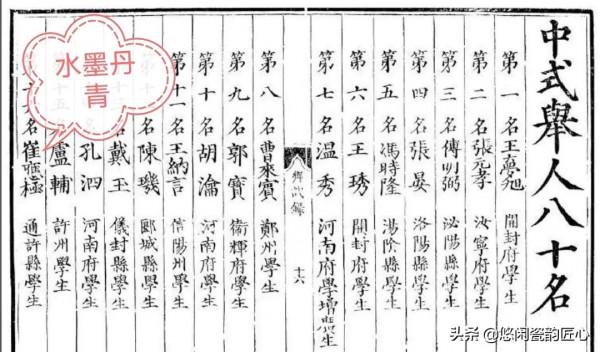 中式舉人八十名
第一名王
開封府學生
第二名張元孝
汝寧府學生
第三名傅明弼
泌陽縣學生
第四名張晏
洛陽縣學生
第五名馮時隆
湯陰縣學生
第六名王琇
開封府學生
第七名温秀
河南府學增廣生
十六
第八名曹來賓
鄭州學生
第九名郭寶
衛輝府學生
第十名胡瀹
河南府學生
第十一名王納言
信陽州學生
第十名陳璣
郾城縣學生
十三名戴玉
儀封縣學生
孔泗
河南府學生
十五盧輔
許州學生
名崔極
通許縣學生
水墨丹青
头条 @悠闲瓷韵匠心